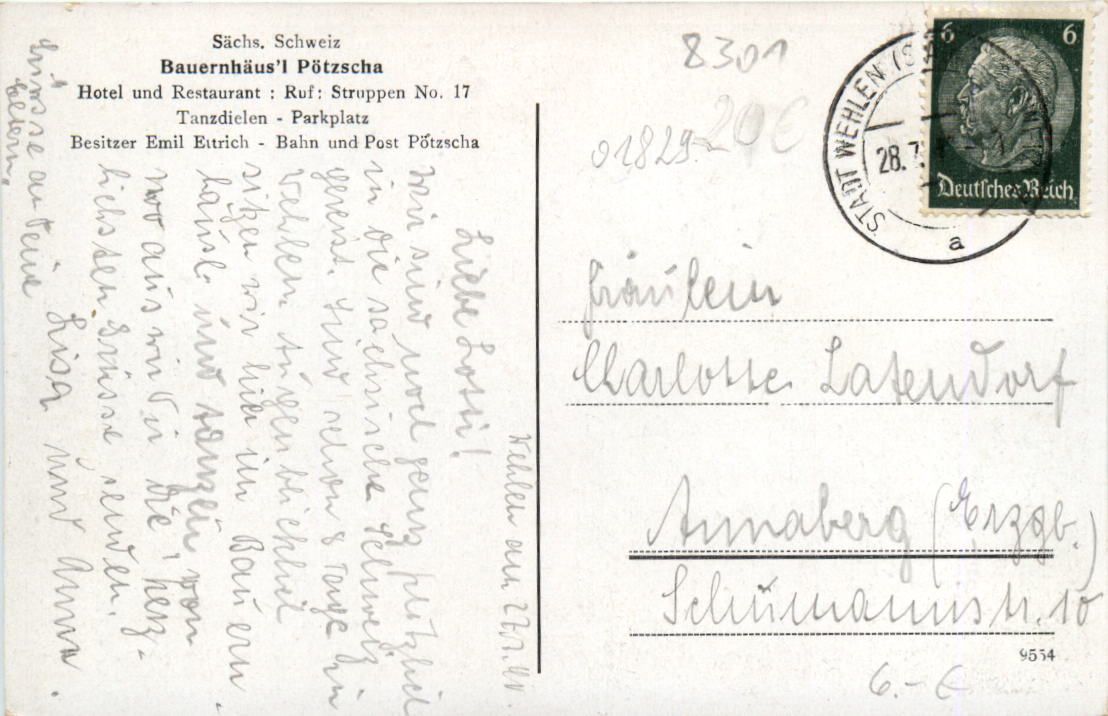 Sächs. Schweiz
Bauernhäus'l Pötzscha
Hotel und Restaurant : Ruf: Struppen No. 17
Tanzdielen - Parkplatz
Besitzer Emil Ettrich - Bahn und Post Pötzscha
Wehlen am
Liebe Lotti!
Wir sind noch ganz plötzlich
in die sächsische Schweiz
gereist. Sind schon 8 Tage in
Wehlen. Augenblicklich
sitzen wir hier im Bauern
häusl. und tanzen von
wo aus wir Dir die herz-
lichsten Grüsse senden.
Lisa und Anna.
Grüsse an Deine
Eltern.
8301
01829
20€
6
6
Deutsches Reich
STADT WEHLEN
28.7
a
Fräulein
Charlotte Latendorf
Annaberg (Erzgb.)
Schumannstr. 10
9554
6.- €